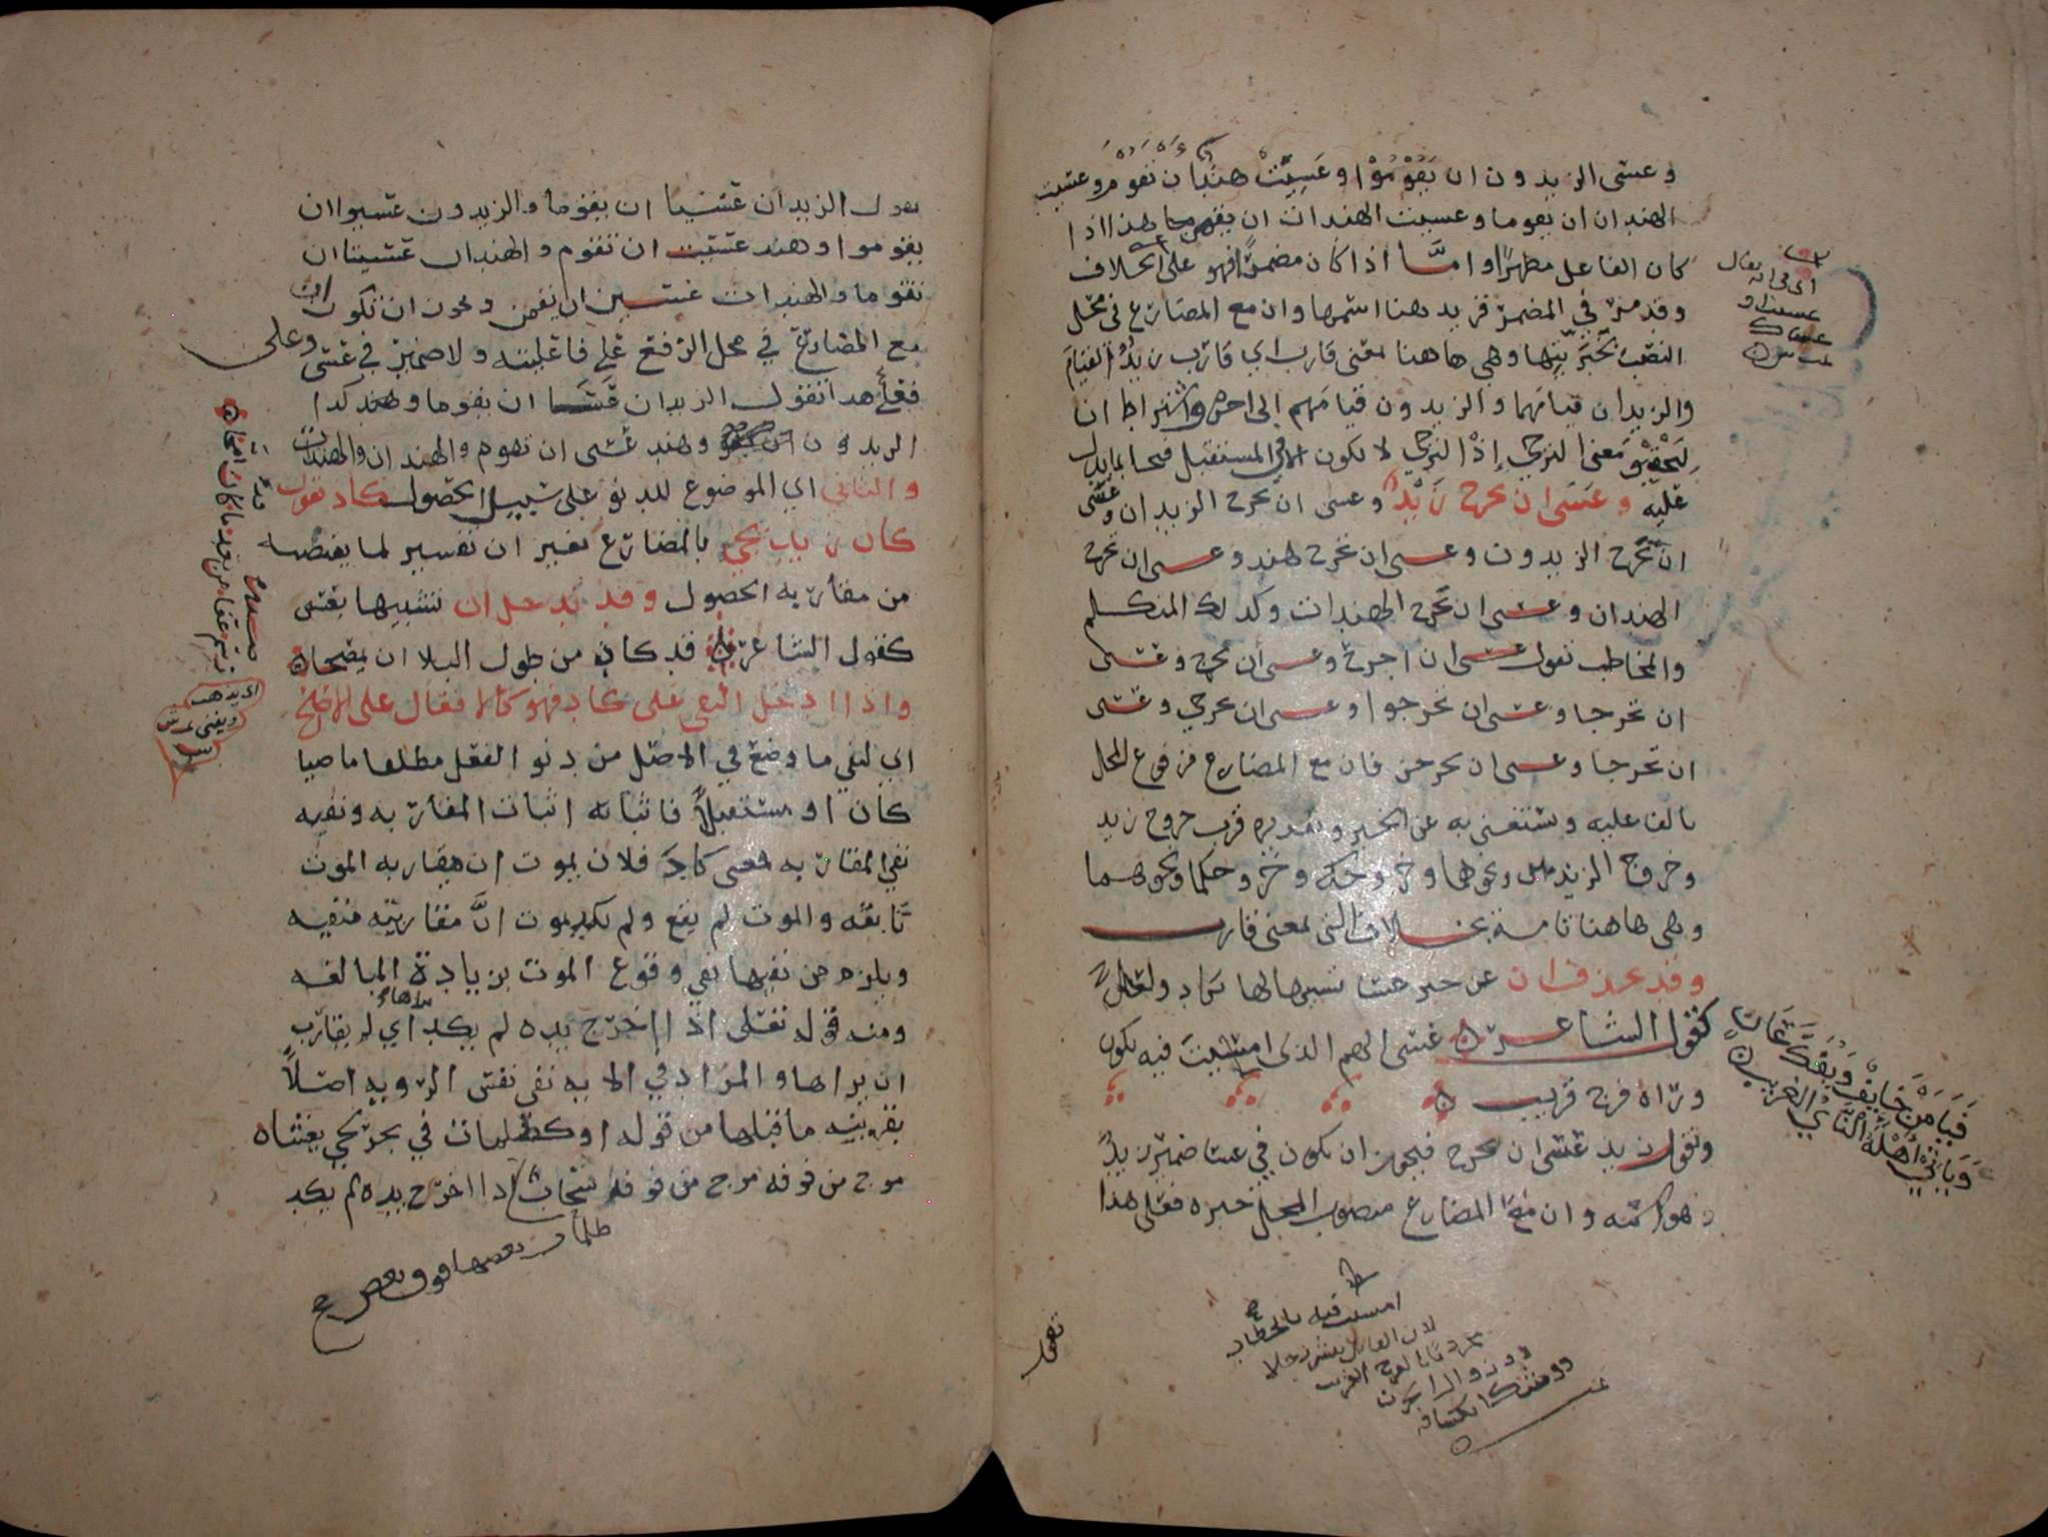 وعسى الزيدون ان يَقُوْمُوْا وعَسِيَتْ هندٌ ان تقوم وعسيت
الهندان ان يقوما وعسيت الهندات ان يقمن هذا اذا
كان الفاعل مظهرًا وامَّا اذا كان مضمرًا فهو على الخلاف
وقد مرّ في المضمر فزيد هنا اسمها وان مع المضارع في محل
النصب بخبريتها وهي هاهنا بمعنى قارب اي قارب زيدٌ القيام
والزيدان قيامهما والزيدون قيامهم الى اخره واشتراط ان
ليتحقق معنى الترجي إذْ الترجي لا يكون الا في المستقبل فجا بما يدل
عليه وعَسَى ان يخرج زيدٌ وعسى ان يخرج الزيدان وعسى
ان يخرج الزيدون وعسى ان تخرج هند وعسى ان تخرج
الهندان وعسى ان تخرج الهندات وكذلك المتكلم
والمخاطب تقول عسى ان اخرج وعسى أن تخرج وعسى
ان تخرجا وعسى ان تخرجوا وعسى ان تخرجي وعسى
ان تخرجا وعسى ان تخرجن فان مع المضارع مرفوع المحل
بالفاعليه ويستغنى به عن الخبر وتقديره قرب خروج زيد
وخروج الزيدين ونحوها وخروجك وخروجكما ونحوهما
وهي هاهنا تامة بخلاف التي بمعنى قارب
وقد تحذف ان عن خبر عسا تشبيها لها بكاد ولعل
كقول الشاعر عسى الهم الذي امسيتَ فيه يكون
وراه فرج قريب
وتقول زيد عسى ان يخرج فيجوز ان يكون في عسا ضمير زيدٍ
وهو اسمه وان مع المضارع منصوب المحل خبره فعلى هذا
اي في انه يقال
عسيت و
عساك
فَيَأمَنَ خَايِفٌ وَيُفَكَّ عَانٍ
وَيَأتِيْ اَهْلَهُ النَّايْ الغريب
امسيت فيه بالخطاب
تقول الزيدان عسَيَا ان يقوما والزيدون عسيوا ان
يقوموا وهند عسيت ان تقوم والهندان عسيتا ان
تقوما والهندات عسين ان يقمن ويجوز ان تكون ان
مع المضارع في محل الرفع على فاعليته ولا ضمير في عسى وعلى
فعلى هذا تقول الزيدان عَسَا ان يقوما وهند كذا
الزيدون وهند عسى ان تقوم والهندان والهندات
والثاني اي الموضوع للدنو على سبيل الحصول كاد تقول
كاد زيد يجي بالمضارع بغير ان تفسير لما يقتضيه
من مقاربه الحصول وقد تدخل ان تشبيها بعسى
كقول الشاعر قد كاد من طول البلا ان يمصحا
واذا ادخل النفي على كاد فهو كالافعال على الاصح
اي لنفي ما وضع في الاصل من دنو الفعل مطلقا ماضيا
كان او مستقبلًا فاثباته اثبات المقاربه ونفيه
نفي المقاربه فمعنى كادَ فلان يموت ان مقاربه الموت
ثابته والموت لم يقع ولم يكد يموت انَّ مقاربته منفيه
ويلزم من نفيها نفي وقوع الموت بزيادة المبالغه
ومنه قوله تعلى اذا اخرج يده لم يكد يراها اي لم يقارب
ان يراها والمراد في الايه نفي نفس الرويه اصلًا
بقرينه ما قبلها من قوله او كظلمات في بحر لجي يغشاه
موج من فوقه موج من فوقه سحاب اذا اخرج يده لم يكد
ظلمات بعضها فوق بعض صح
اي يذهب